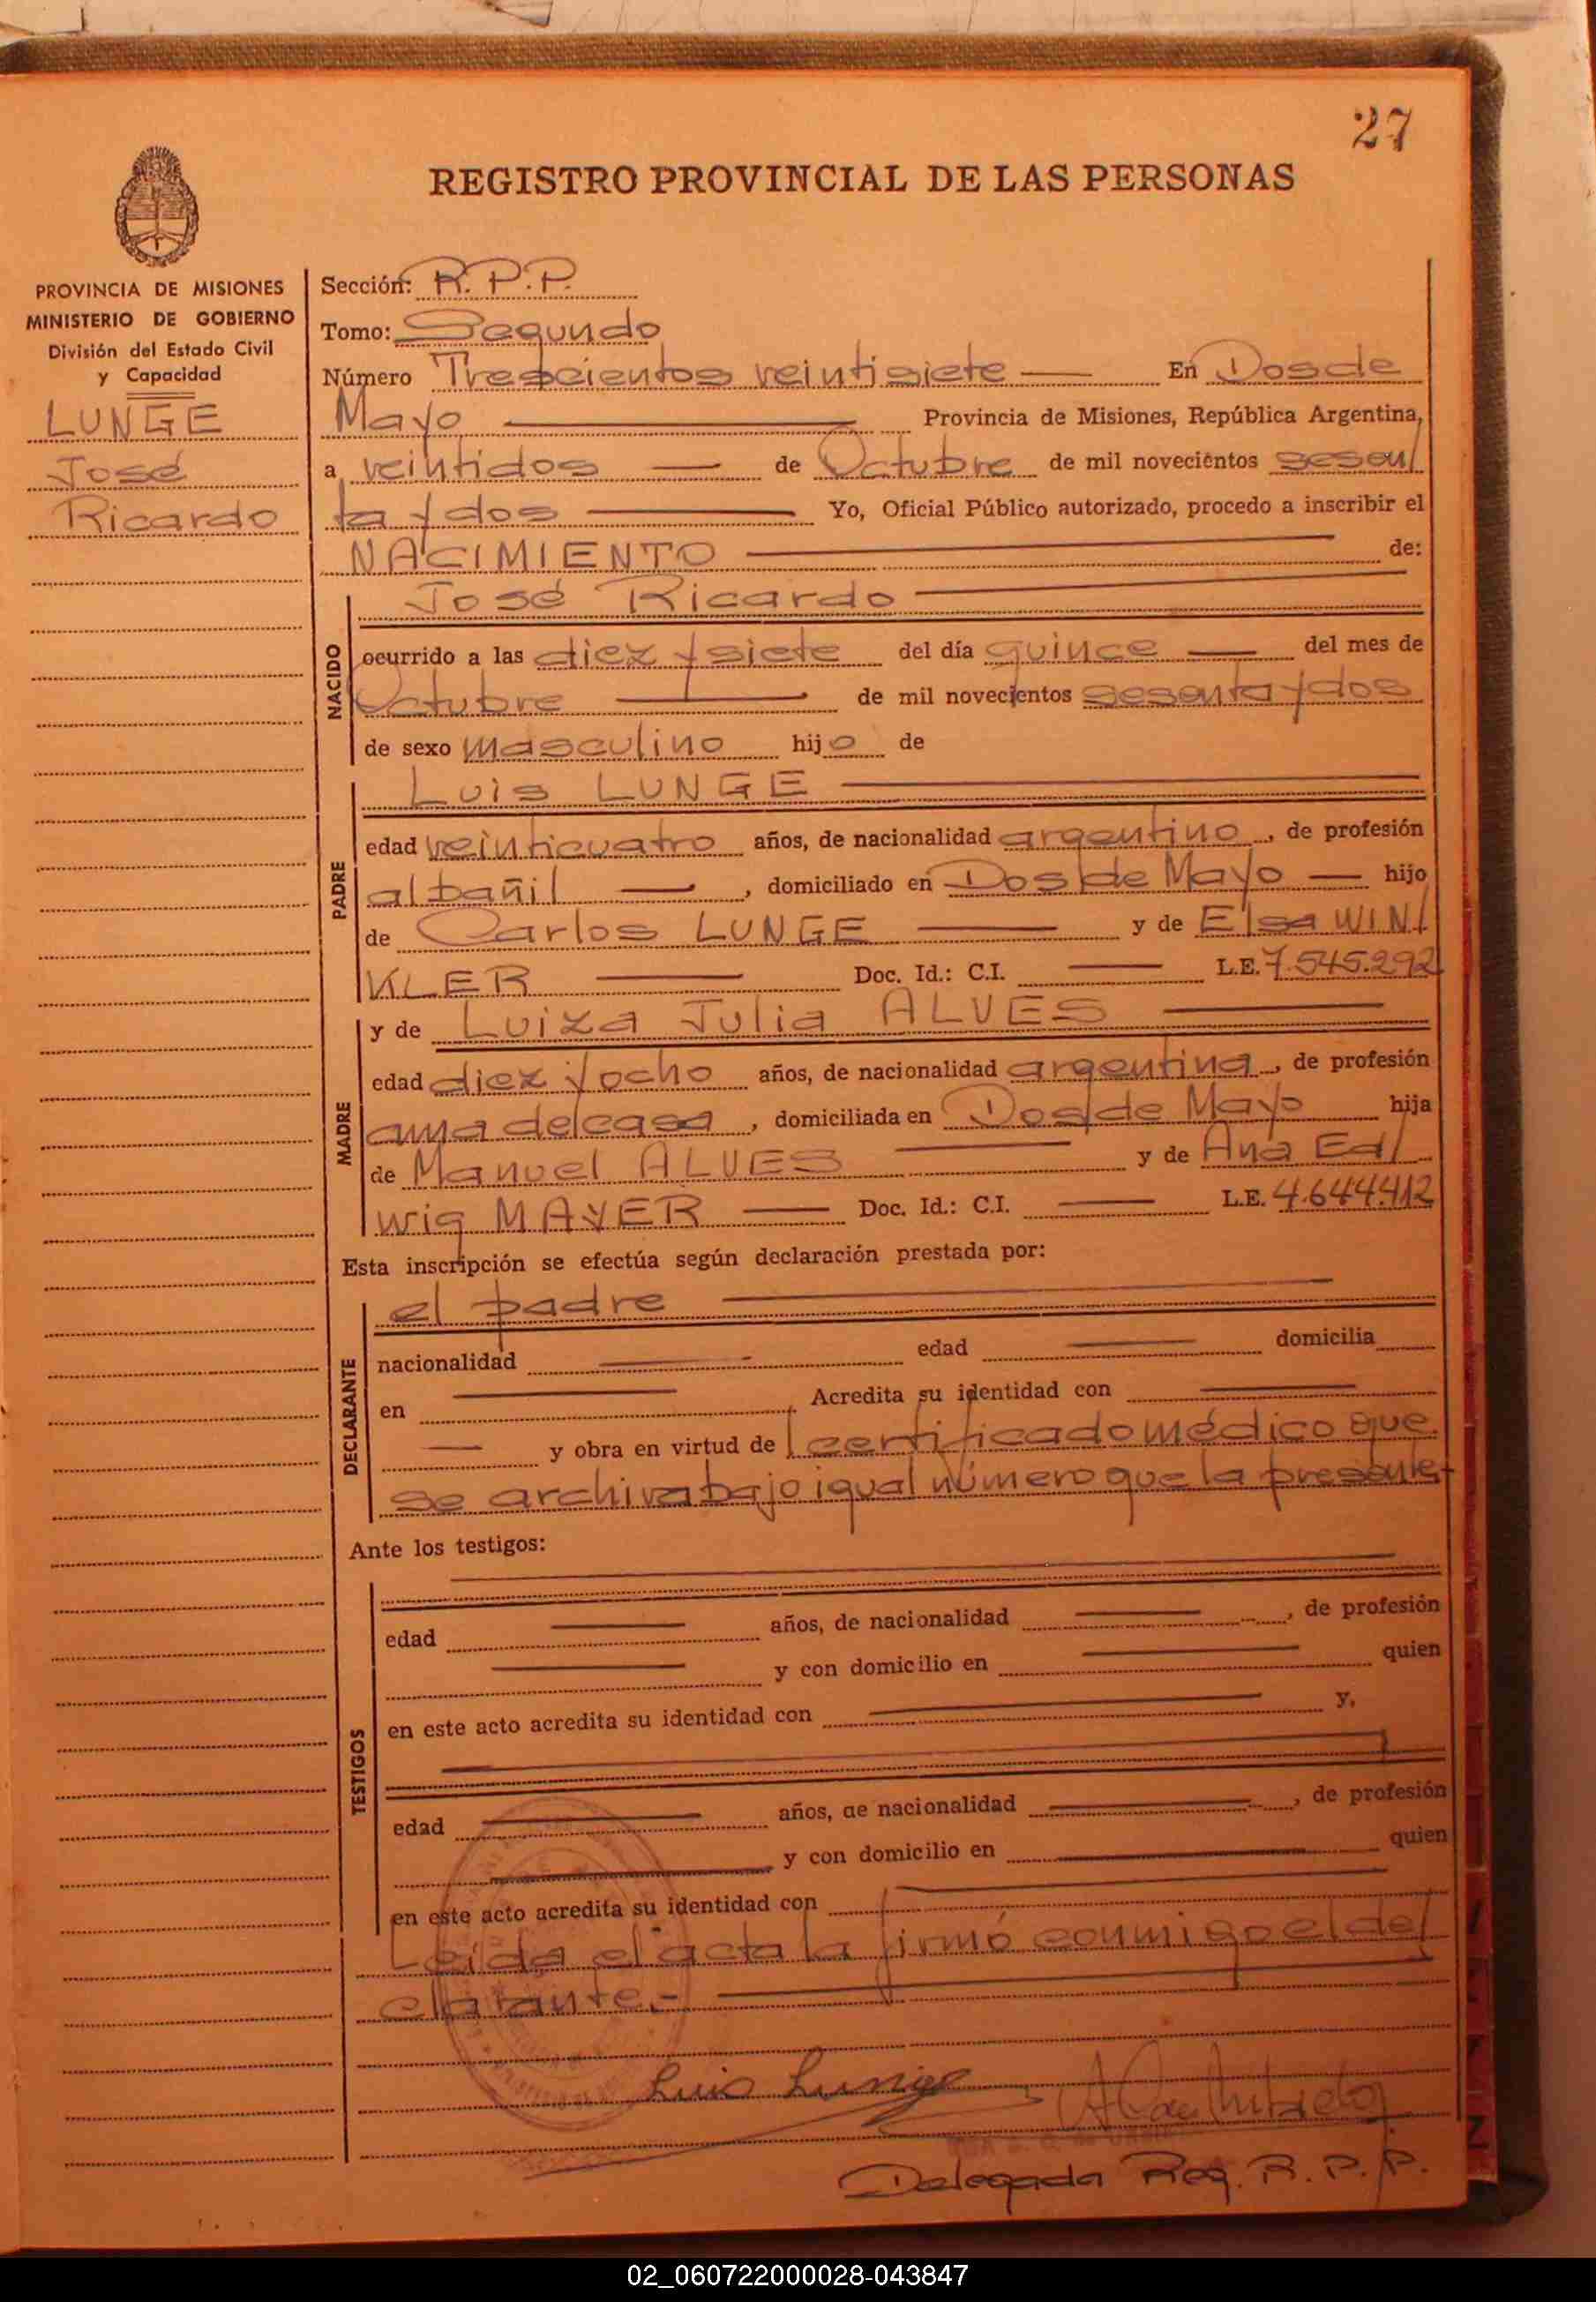 27
REGISTRO PROVINCIAL DE LAS PERSONAS
PROVINCIA DE MISIONES
MINISTERIO DE GOBIERNO
División del Estado Civil
y Capacidad
LUNGE
José
Ricardo
Sección: R. P. P.
Tomo: Segundo
Número Trescientos veintisiete En Dos de
Mayo Provincia de Misiones, República Argentina,
a veintidos de Octubre de mil novecientos sesen/
ta y dos Yo, Oficial Público autorizado, procedo a inscribir el
NACIMIENTO de:
NACIDO
José Ricardo
ocurrido a las diez y siete del día quince del mes de
Octubre de mil novecientos sesenta y dos
de sexo masculino hijo de
PADRE
Luis LUNGE
edad veinticuatro años, de nacionalidad argentino, de profesión
albañil, domiciliado en Dos de Mayo hijo
de Carlos LUNGE y de Elsa WIN/
KLER Doc. Id.: C.I. L.E. 7.545.292
MADRE
y de Luiza Julia ALVES
edad diez y ocho años, de nacionalidad argentina, de profesión
ama de casa, domiciliada en Dos de Mayo hija
de Manuel ALVES y de Ana Ed/
wig MAYER Doc. Id.: C.I. L.E. 4.644.412
Esta inscripción se efectúa según declaración prestada por:
DECLARANTE
el padre
nacionalidad edad domicilia
en Acredita su identidad con
y obra en virtud de certificado médico que
se archiva bajo igual número que la presente.-
Ante los testigos:
TESTIGOS
edad años, de nacionalidad , de profesión
y con domicilio en quien
en este acto acredita su identidad con y,
edad años, de nacionalidad , de profesión
y con domicilio en quien
en este acto acredita su identidad con
Leída el acta la firmó conmigo el de/
clarante.-
Luis Lunge
Delegada Reg. R. P. P.
02_060722000028-043847